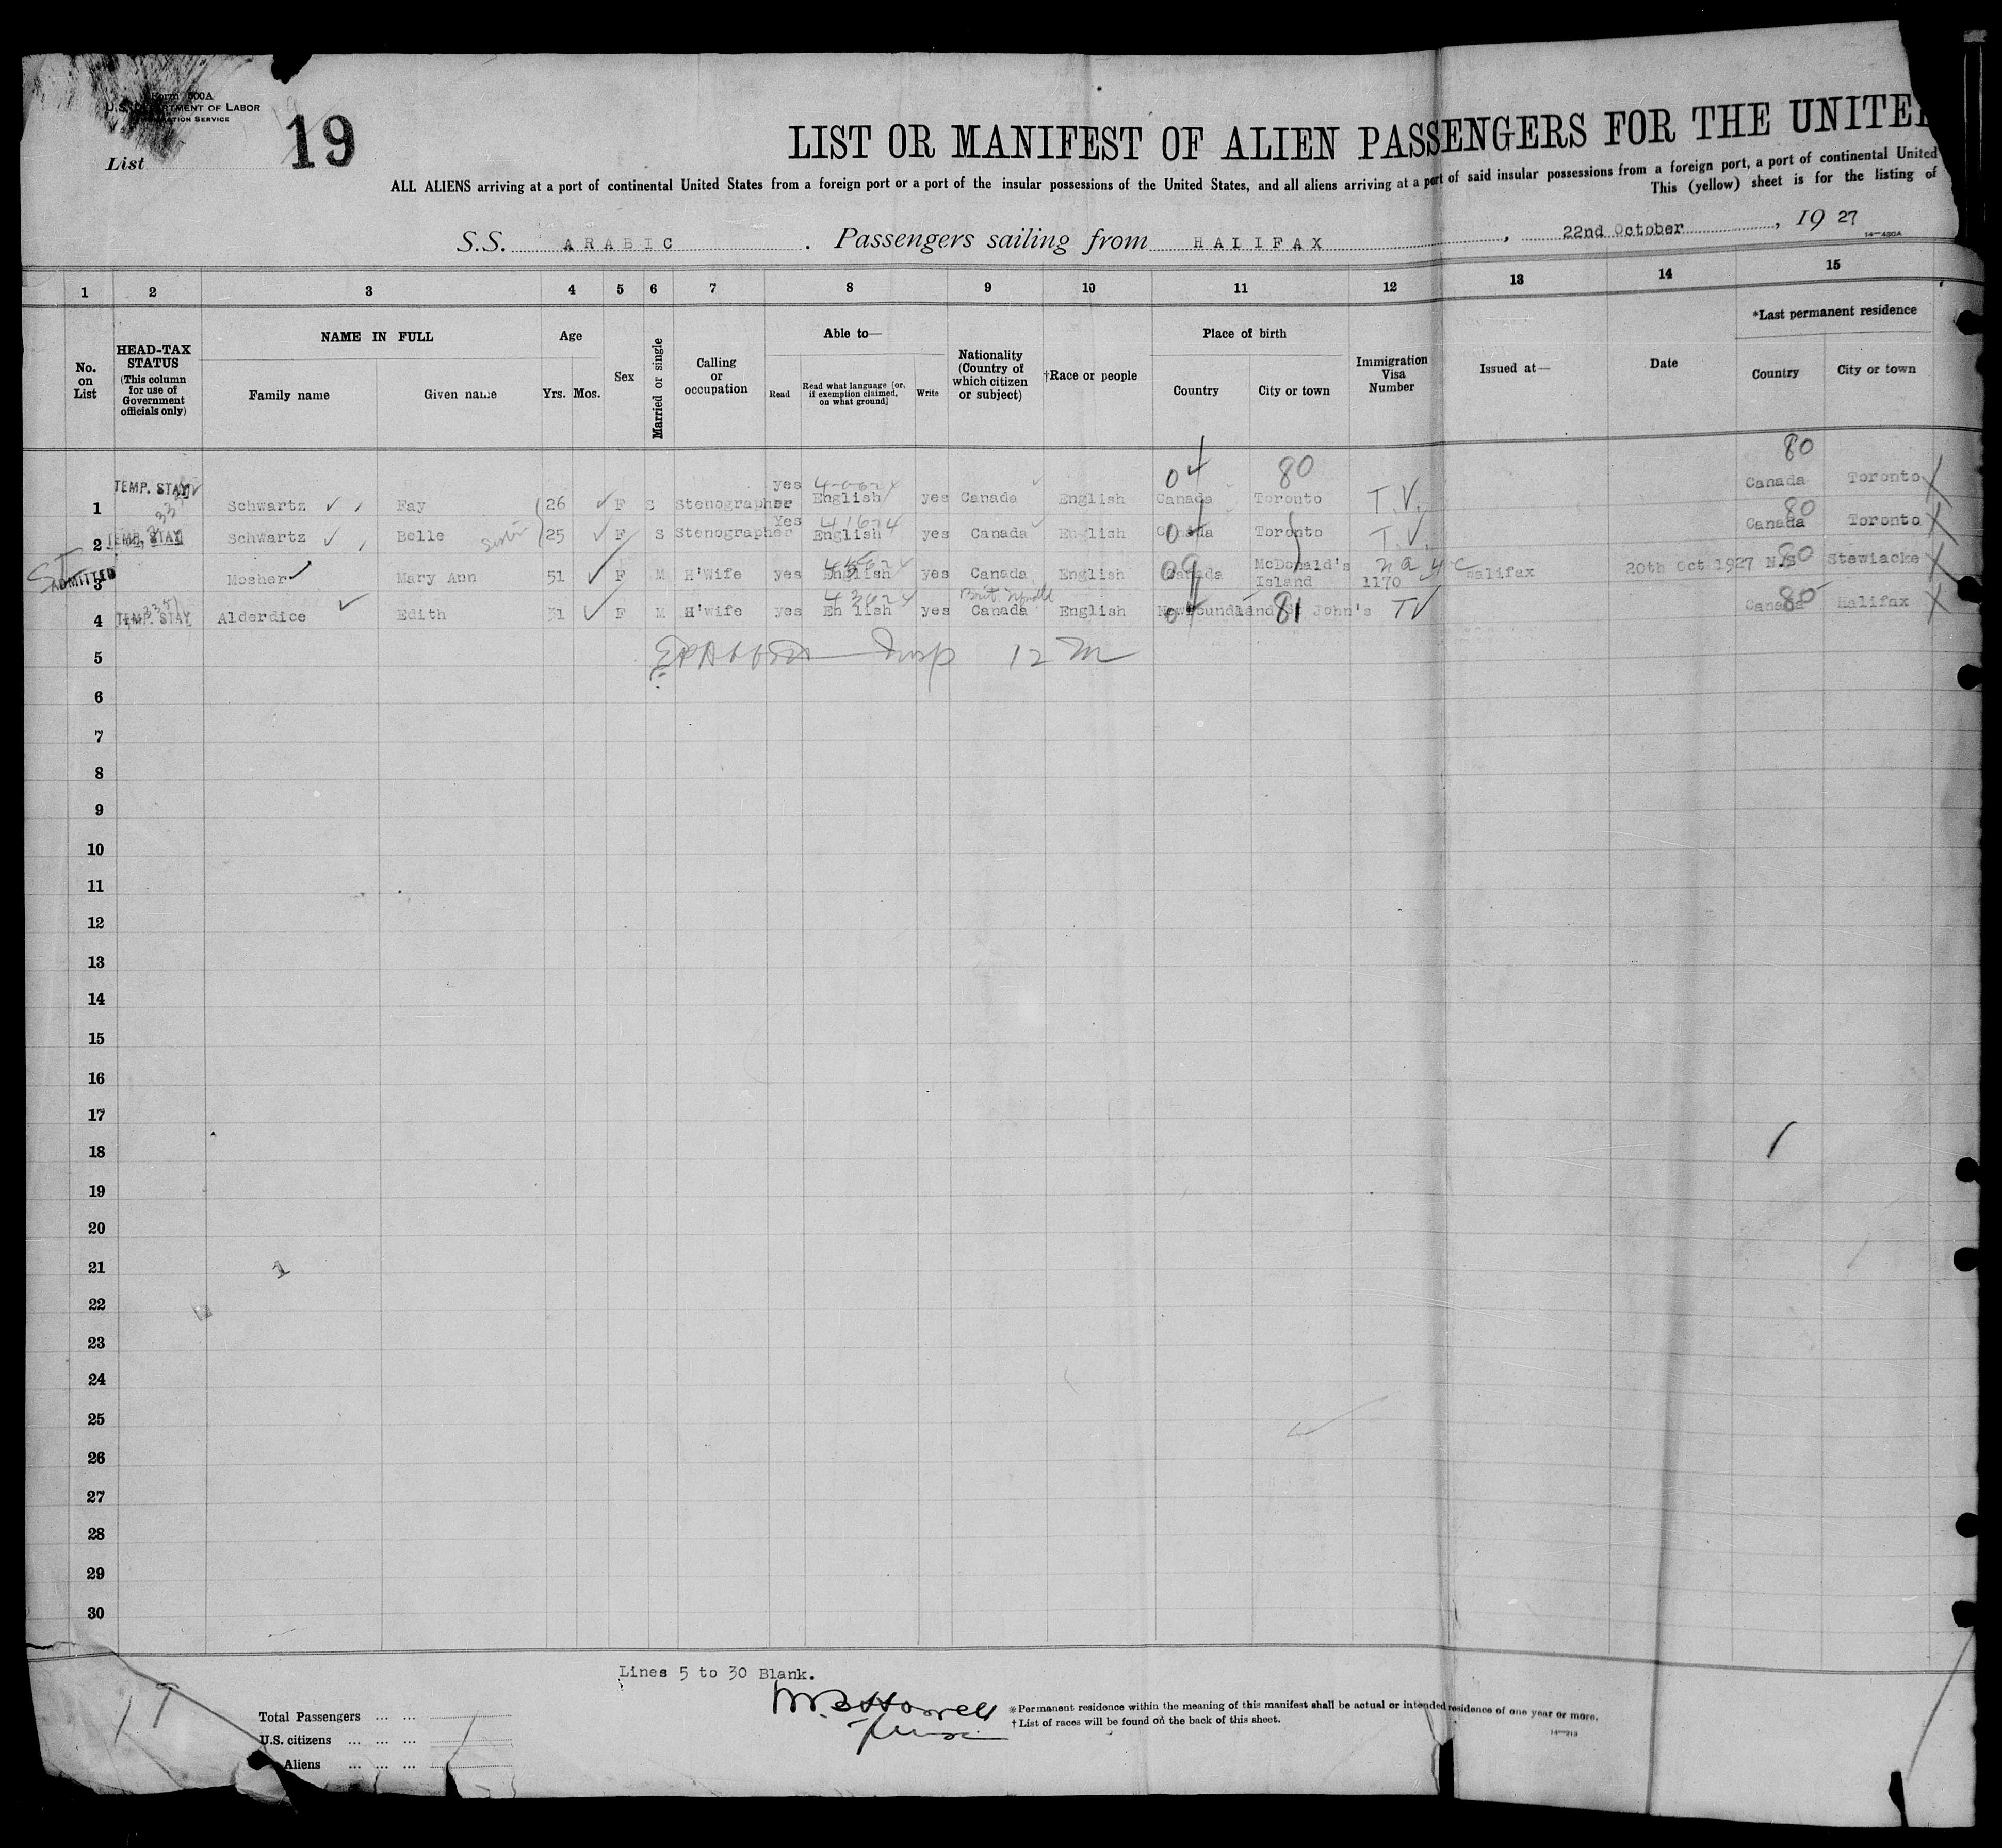 Form 500A
U.S. DEPARTMENT OF LABOR
IMMIGRATION SERVICE
List 19
LIST OR MANIFEST OF ALIEN PASSENGERS FOR THE UNITE
ALL ALIENS arriving at a port of continental United States from a foreign port or a port of the insular possessions of the United States, and all aliens arriving at a port of said insular possessions from a foreign port, a port of continental United
This (yellow) sheet is for the listing of
S.S. ARABIC . Passengers sailing from HALIFAX , 22nd October , 19 27
14—430A
1 2 3 4 5 6 7 8 9 10 11 12 13 14 15
No. on List
HEAD-TAX STATUS (This column for use of Government officials only)
NAME IN FULL
Family name Given name
Age
Yrs. Mos.
Sex
Married or single
Calling or occupation
Able to—
Read Read what language [or, if exemption claimed, on what ground] Write
Nationality (Country of which citizen or subject)
†Race or people
Place of birth
Country City or town
Immigration Visa Number
Issued at—
Date
*Last permanent residence
Country City or town
04 80 80
1 TEMP. STAY Schwartz Fay 26 F S Stenographer yes English yes Canada English Canada Toronto T.V. Canada Toronto
80
2 TEMP. STAY Schwartz Belle Sister 25 F S Stenographer Yes English yes Canada English Canada Toronto T.V. Canada Toronto
3 ADMITTED Mosher Mary Ann 51 F M H'Wife yes English yes Canada English Canada McDonald's Island 1170 Halifax 20th Oct 1927 N.S 80 Stewiacke
4 TEMP. STAY Alderdice Edith 31 F M H'wife yes En lish yes Canada English Newfoundland 81 St John's TV Canada 80 Halifax
5 Insp 12 M
6
7
8
9
10
11
12
13
14
15
16
17
18
19
20
21
22
23
24
25
26
27
28
29
30
Lines 5 to 30 Blank.
19
Total Passengers ... ...
U.S. citizens ... ... ...
Aliens ... ... ...
* Permanent residence within the meaning of this manifest shall be actual or intended residence of one year or more.
† List of races will be found on the back of this sheet.